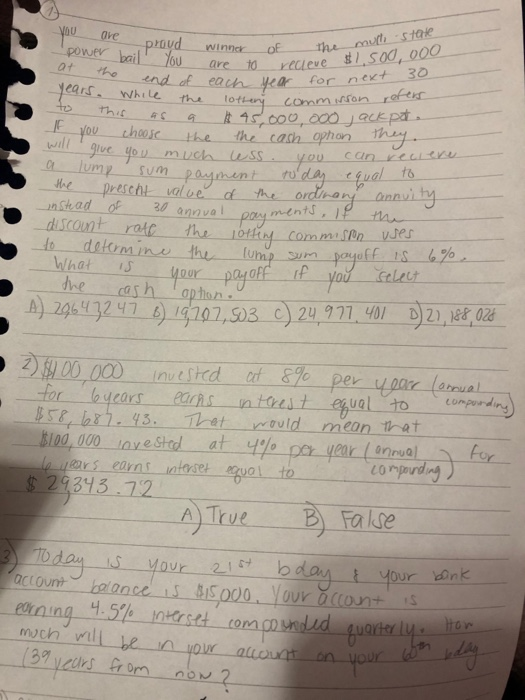 1.)
you are proud winner of the multi-state
power ball you are to recieve $1,500,000
at the end of each year for next 30
years. While the lottery commisson refers
to this as a $45,000,000 jackpot.
If you choose the the cash option they.
will give you much less. you can recieve
a lump sum payment today equal to
the present value of the ordinary annuity
instead of 30 annual payments. If the
discount rate the lottery commison uses
to determine the lump sum payoff is 6%.
What is your payoff if you select
the cash option.
A) 20643247 B) 19,707,503 C) 24,977,401 D) 21,188,028
2) $100,000 invested at 8% per year (annual
for 6 years earns interest equal to compounding)
$58,687.43. That would mean that
$100,000 invested at 4% per year (annual compounding) for
6 years earns interset equal to
$29,343.72
A) True B) False
3) Today is your 21st bday & your bank
account balance is $15,000. Your account is
earning 4.5% interset compounded quarterly. How
much will be in your account on your 60th bday
(39 years from now?